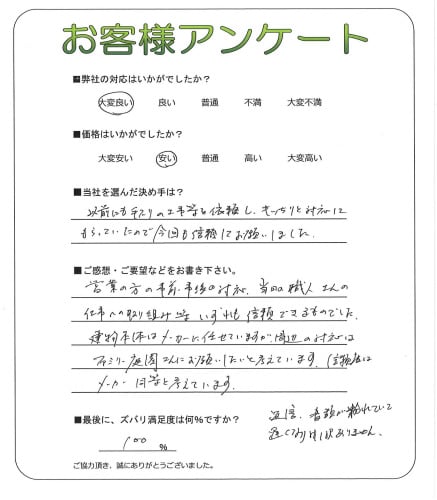 お客様アンケート
■弊社の対応はいかがでしたか？
大変良い 良い 普通 不満 大変不満
■価格はいかがでしたか？
大変安い 安い 普通 高い 大変高い
■当社を選んだ決め手は？
以前にも手スリの工事等を依頼し、きっちりと対応に
もらっていたので今回も信頼してお願いしました。
■ご感想・ご要望などをお書き下さい。
営業の方の事前・事後の対応、当日の職人さんの
仕事への取り組み等いずれも信頼できるものでした。
建物本体はメーカーに任せていますが周辺の対応は
ファミリー庭園さんにお願いしたいと考えています。（信頼度は
メーカー同等と考えています。
■最後に、ズバリ満足度は何％ですか？
100 %
返信、書類が紛れていて
遅くなり申し訳ありません。
ご協力頂き、誠にありがとうございました。